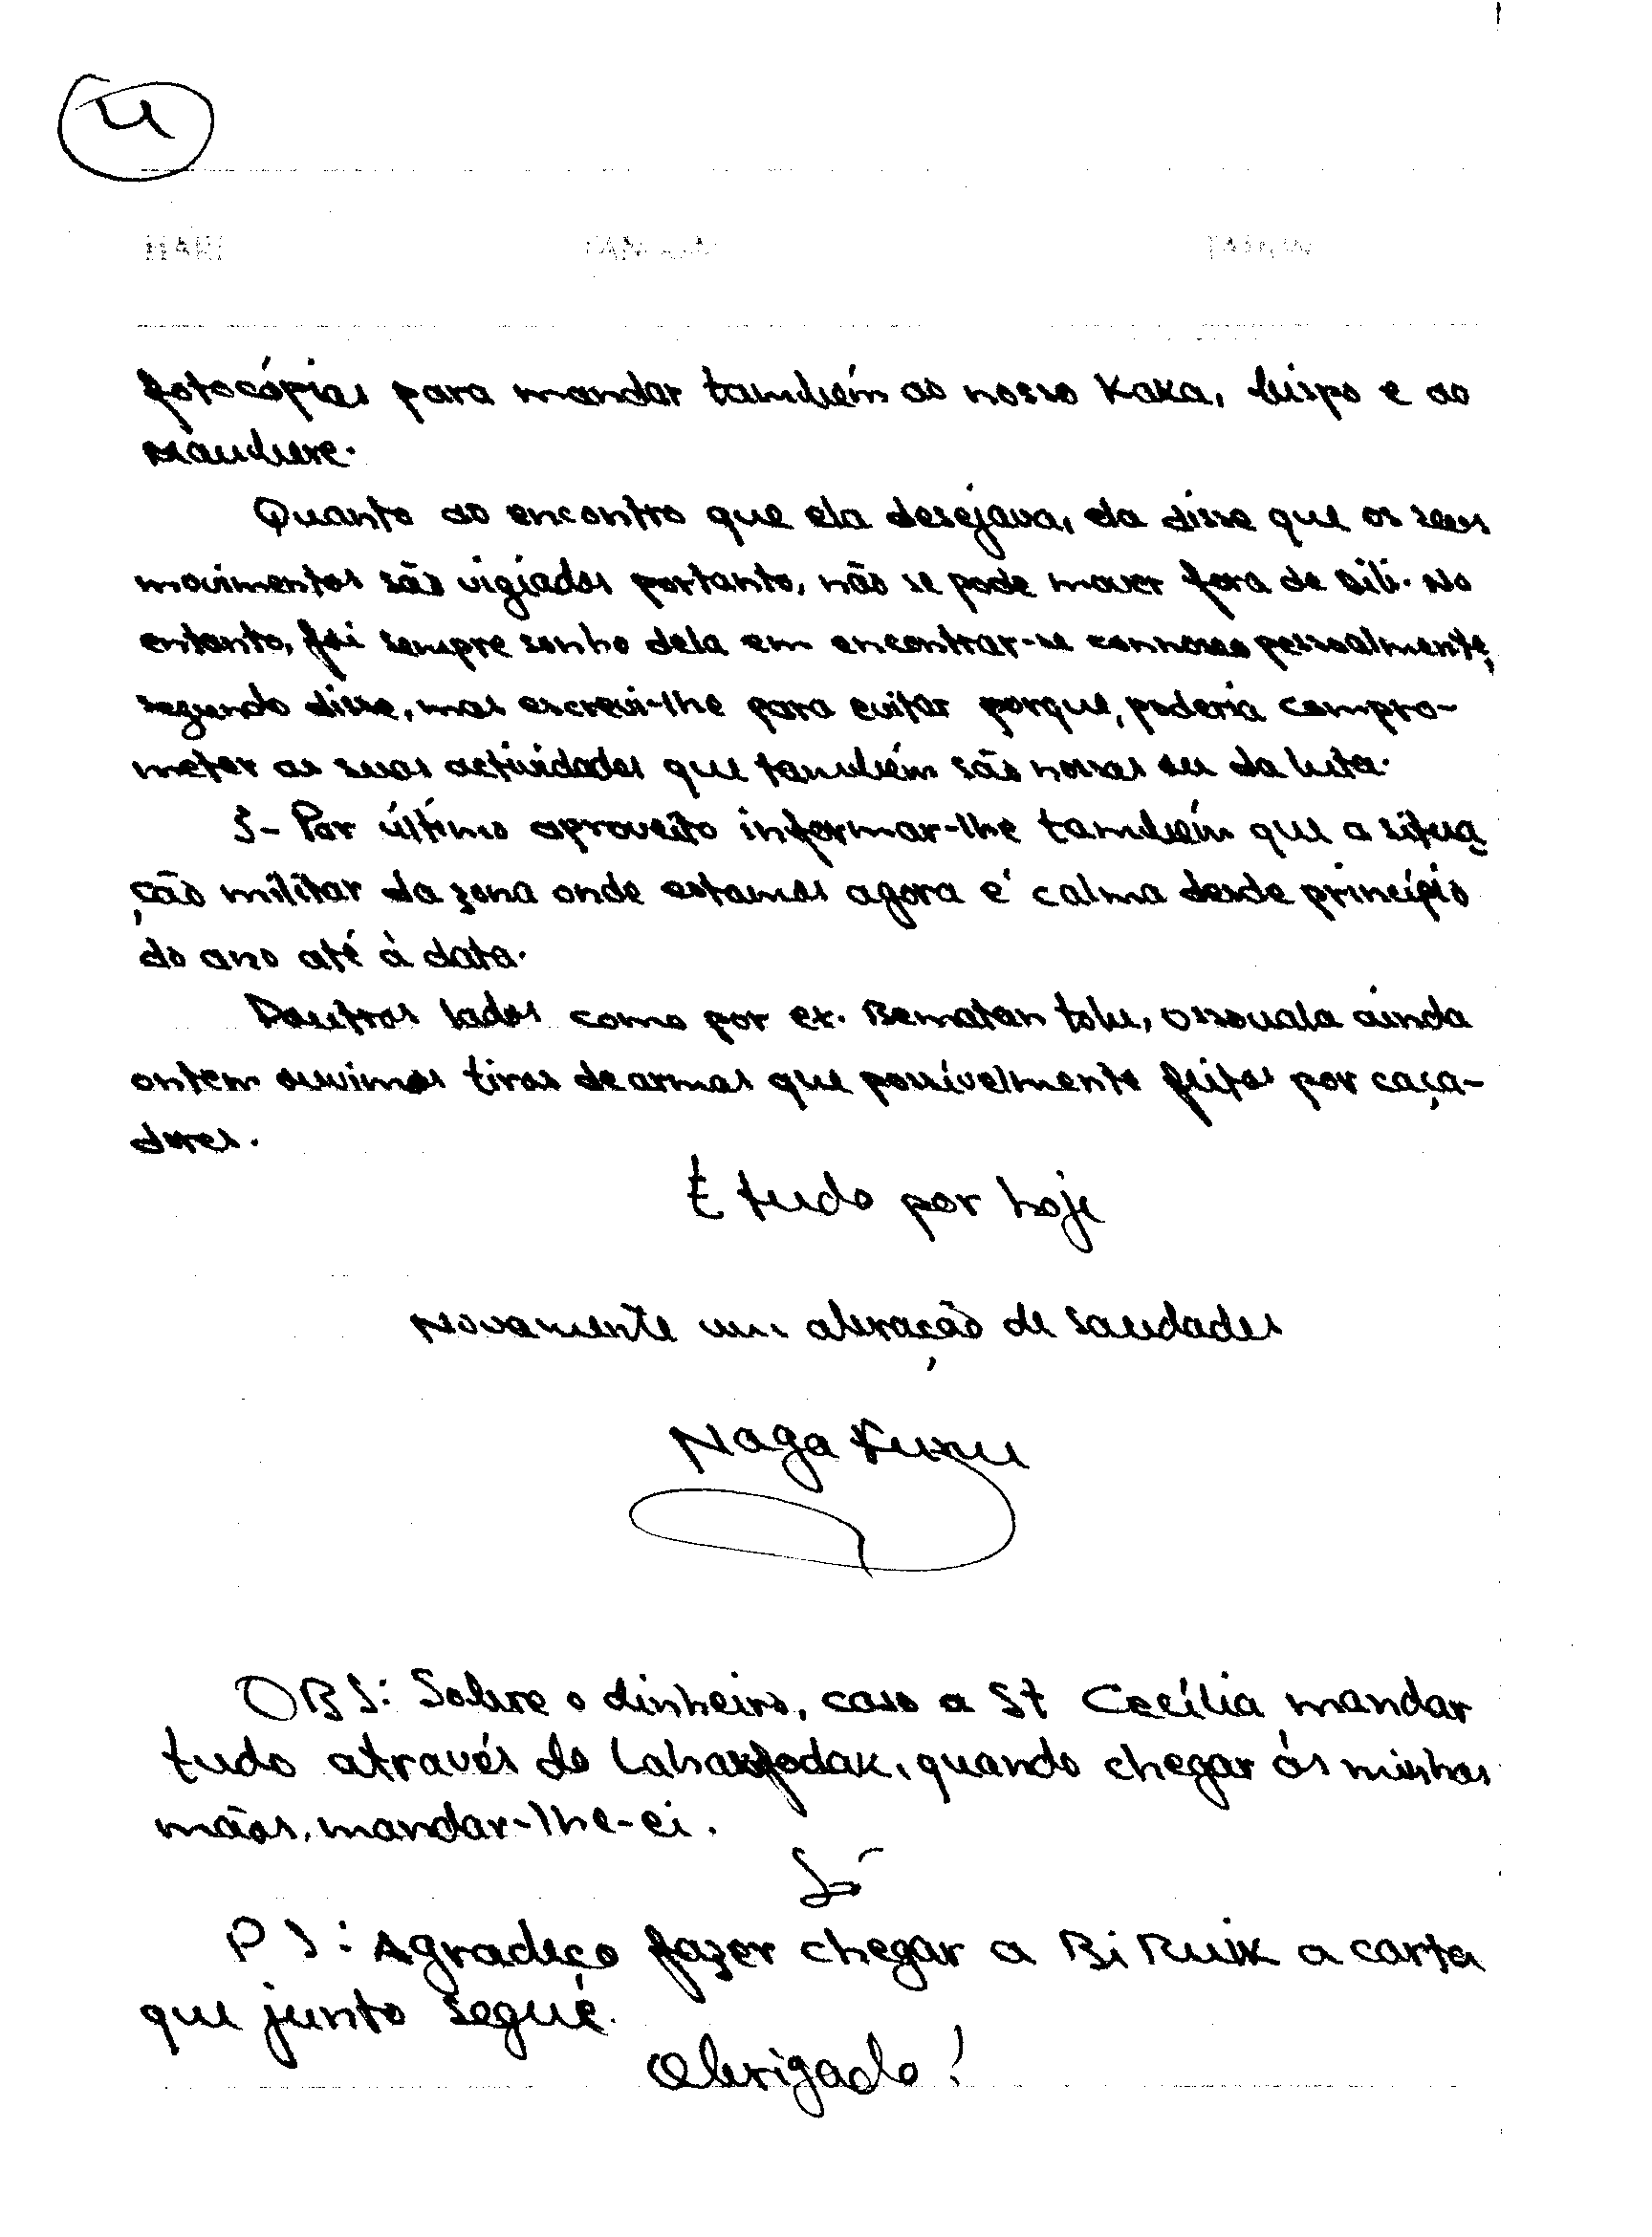 4
HARI TANGGAL
fotocópias para mandar também ao nosso Kaka, bispo e ao
Mauhere.
Quanto ao encontro que ela desejava, ela disse que os seus
movimentos são vigiados portanto, não se pode mover fora de Dili. No
entanto, foi sempre sonho dela em encontrar-se connosco pessoalmente,
segundo disse, mas escrevi-lhe para evitar porque, poderia compro-
meter as suas actividades que também são nossas ou da luta.
5- Por último aproveito informar-lhe também que a situa
ção militar da zona onde estamos agora é calma desde princípio
do ano até à data.
Doutros lados como por ex. Bematan tolu, Ossouala ainda
ontem ouvimos tiros de armas que possívelmente feitos por caça-
dores.
É tudo por hoje
Novamente um abração de saudades
Naga Kuru
OBS: Sobre o dinheiro, caso a St Cecília mandar
tudo através do Lahakfodak, quando chegar ás minhas
mãos, mandar-lhe-ei.
Só
PS: Agradeço fazer chegar a Bi Ruik a carta
que junto segue.
Obrigado!